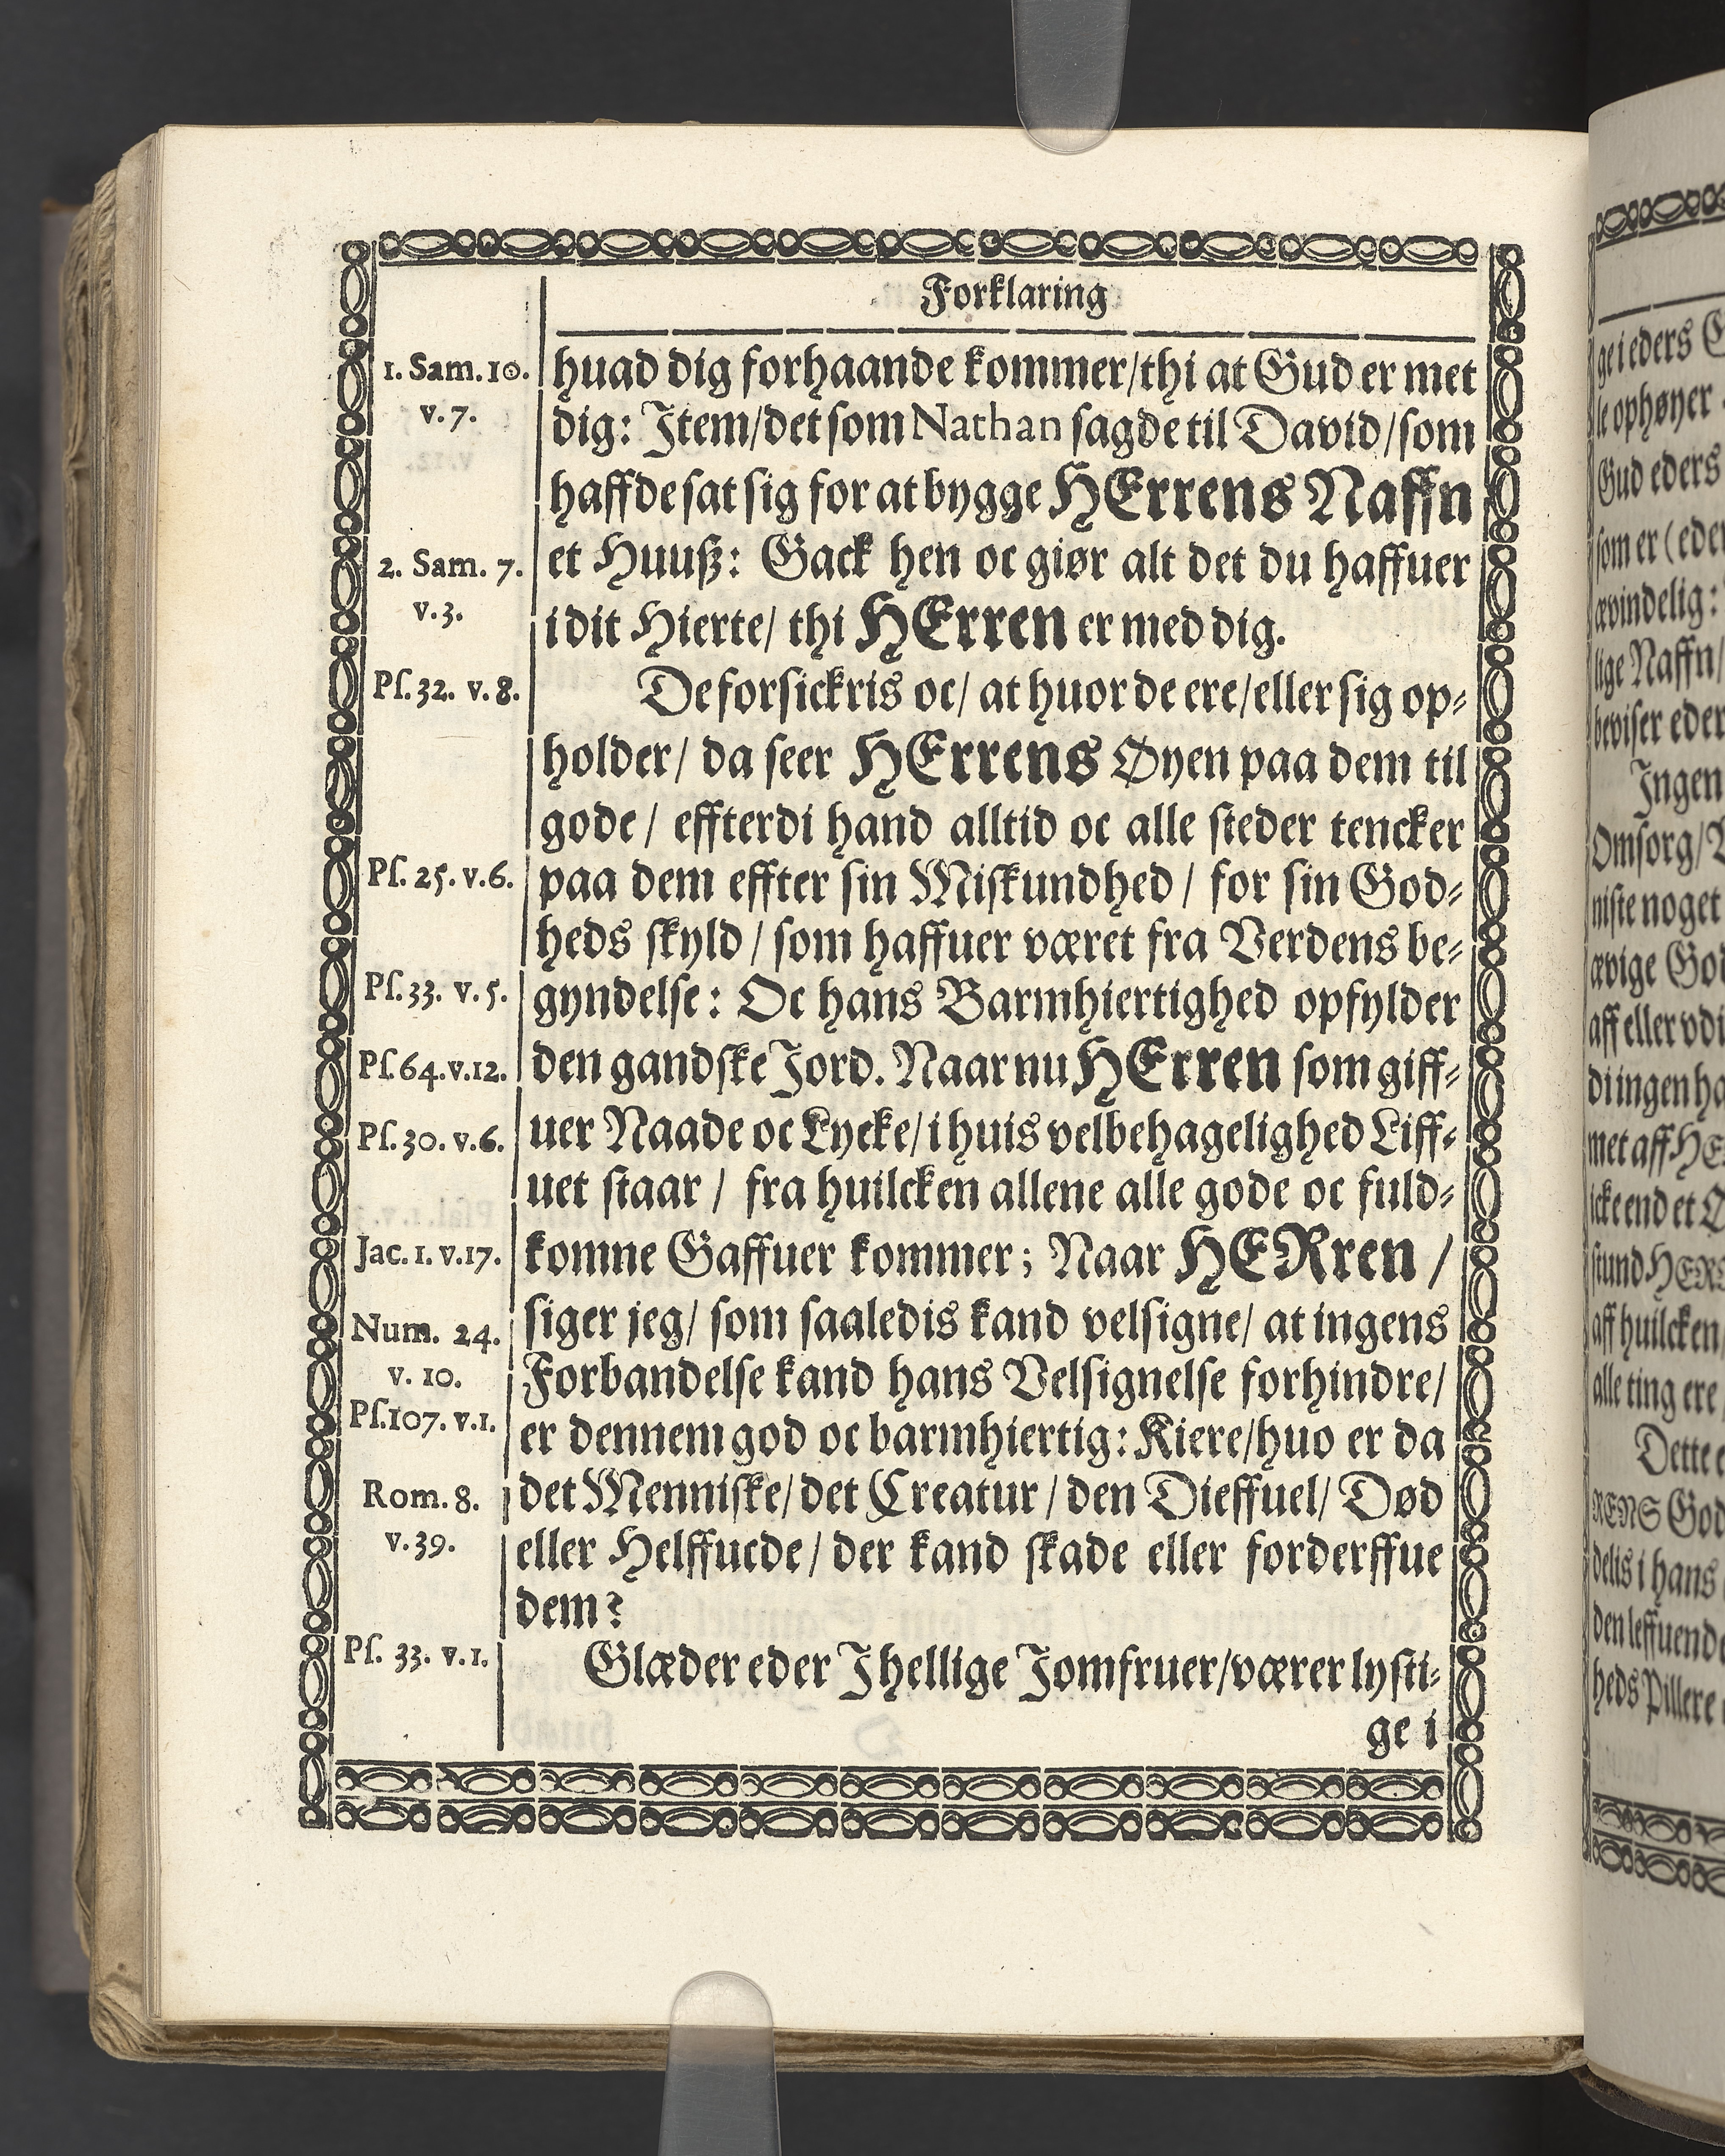 Forklaring
1. Sam. 10.
v. 7.
2. Sam. 7.
v. 3.
Pſ. 32. v. 8.
Pſ. 25. v. 6.
Pſ. 33. v. 5.
Pſ. 64. v. 12.
Pſ. 30. v. 6.
Jac. 1. v. 17.
Num. 24.
v. 10.
Pſ. 107. v. 1.
Rom. 8.
v. 39.
Pſ. 33. v. 1.
huad dig forhaande kommer/thi at Gud er met
dig: Item/det ſom Nathan ſagde til David/ſom
haffde ſat ſig for at bygge HErrens Naffn
et Huuß: Gack hen oc giør alt det du haffuer
i dit Hierte/ thi HErren er med dig.
De forſickris oc/ at huor de ere/eller ſig op⸗
holder/ da ſeer HErrens Øyen paa dem til
gode/ effterdi hand alltid oc alle ſteder tencker
paa dem effter ſin Miſkundhed/ for ſin God⸗
heds ſkyld/ ſom haffuer været fra Verdens be⸗
gyndelſe: Oc hans Barmhiertighed opfylder
den gandſke Jord. Naar nu HErren ſom giff⸗
uer Naade oc Lycke/i huis velbehagelighed Liff⸗
uet ſtaar/ fra huilcken allene alle gode oc fuld⸗
komne Gaffuer kommer; Naar HERren/
ſiger jeg/ ſom ſaaledis kand velſigne/ at ingens
Forbandelſe kand hans Velſignelſe forhindre/
er dennem god oc barmhiertig: Kiere/huo er da
det Menniſke/det Creatur/den Dieffuel/ Død
eller Helffuede/ der kand ſkade eller forderffue
dem?
Glæder eder I hellige Jomfruer/værer lyſti⸗
ge i